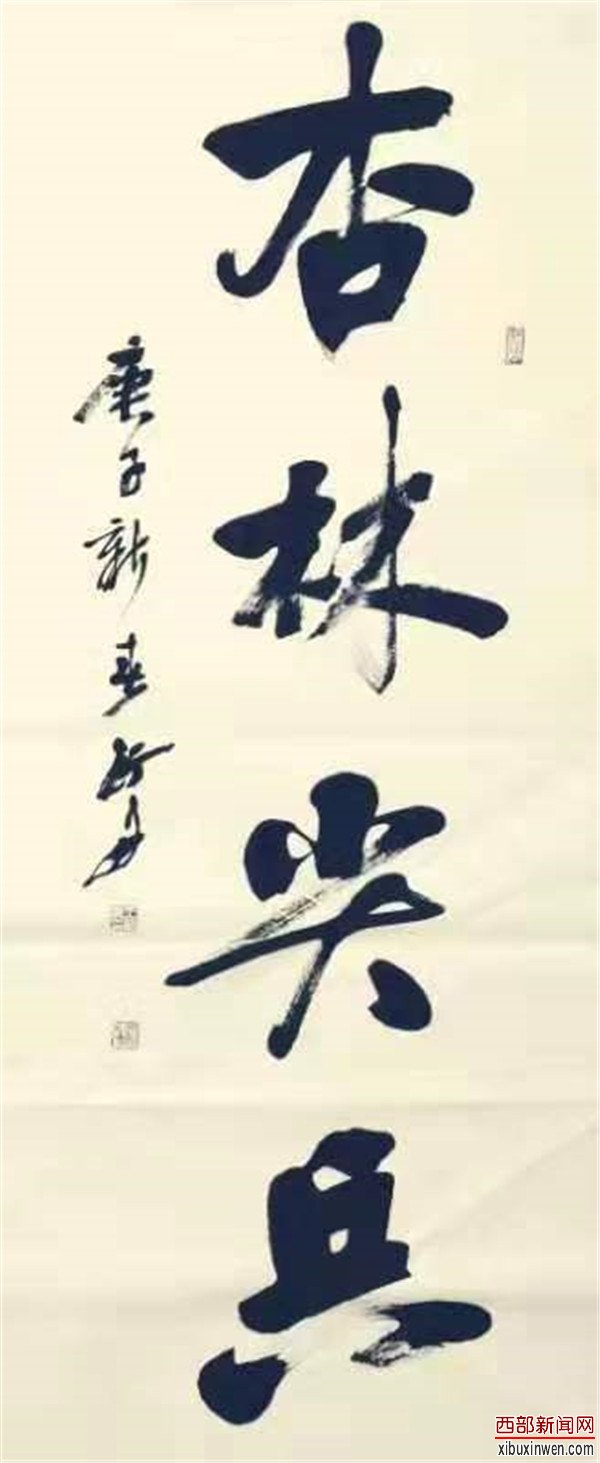 杏林尖兵
庚子新春
西部新闻网
xibuxinwen.com